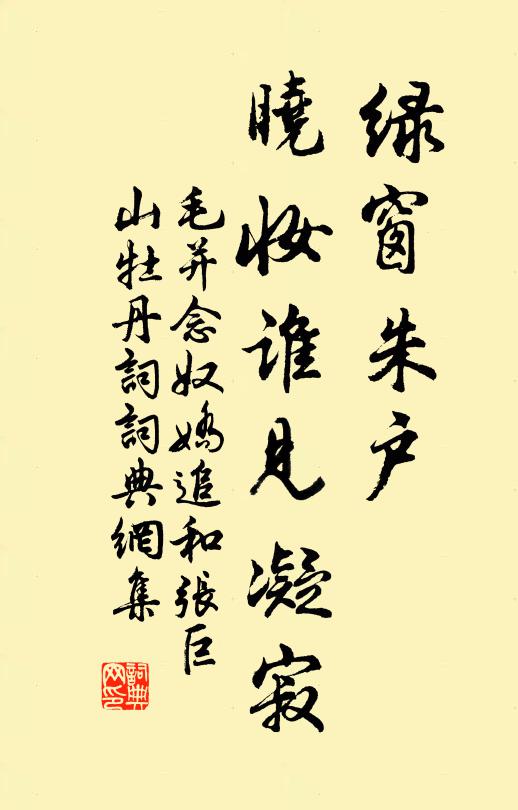 绿窗朱户
曉妆谁見凝寂
毛并念奴嬌追和張巨
山牡丹詞詞典網集
詞典网印